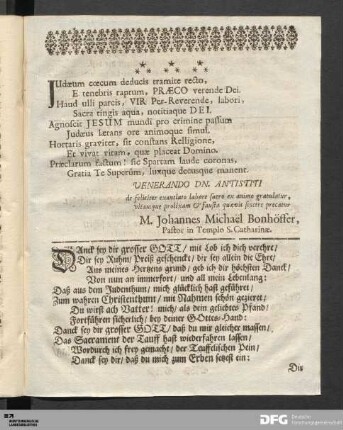 JUdæum cœcum deducis tramite recto,
E tenebris raptum, PRÆCO verende Dei.
Haud ulli parcis, VIR Per-Reverende, labori,
Sacra tingis aqua, notitiaque DEI.
Agnoscit JESUM mundi pro crimine passum
Judæus letans ore animoque simul.
Hortaris graviter, sit constans Relligione,
Et vivat vitam, quæ placeat Domino.
Præclarum factum! sic Spartam laude coronas.
Gratia Te Superûm, luxque decusque manent.
VENERANDO DN. ANTISTITI
de feliciter exanclato labore sacro ex animo gratulatur,
& fausta quævis
M. Johannes Michaël Bonhöffer,
Pastor in Templo S. Catharinæ.
DAnck sey dir grosser GOTT / mit Lob ich dich verehre /
Dir sey Ruhm / Preiß geschenckt / dir sey allein die Ehre /
Aus meines Hertzens grund / geb ich dir höchsten Danck /
Von nun an immerfort / und all mein Lebenlang:
Daß aus dem Judenthum / mich glücklich hast geführet /
Zum wahren Christenthum / mit Nahmen schön gezieret /
Du wirst ach Vatter! mich / als dein geliebtes Pfand /
Fortführen sicherlich / bey deiner GOttes-Hand:
Danck sey dir grosser GOTT / daß du mir gleicher massen /
Das Sacrament der Tauff hast wiederfahren lassen /
Wordurch ich frey gemacht / der Teuffelischen Pein /
Danck sey dir / daß du mich zum Erben setzest ein:
Die
DFG
Deutsche
Forschungsgemeinschaft